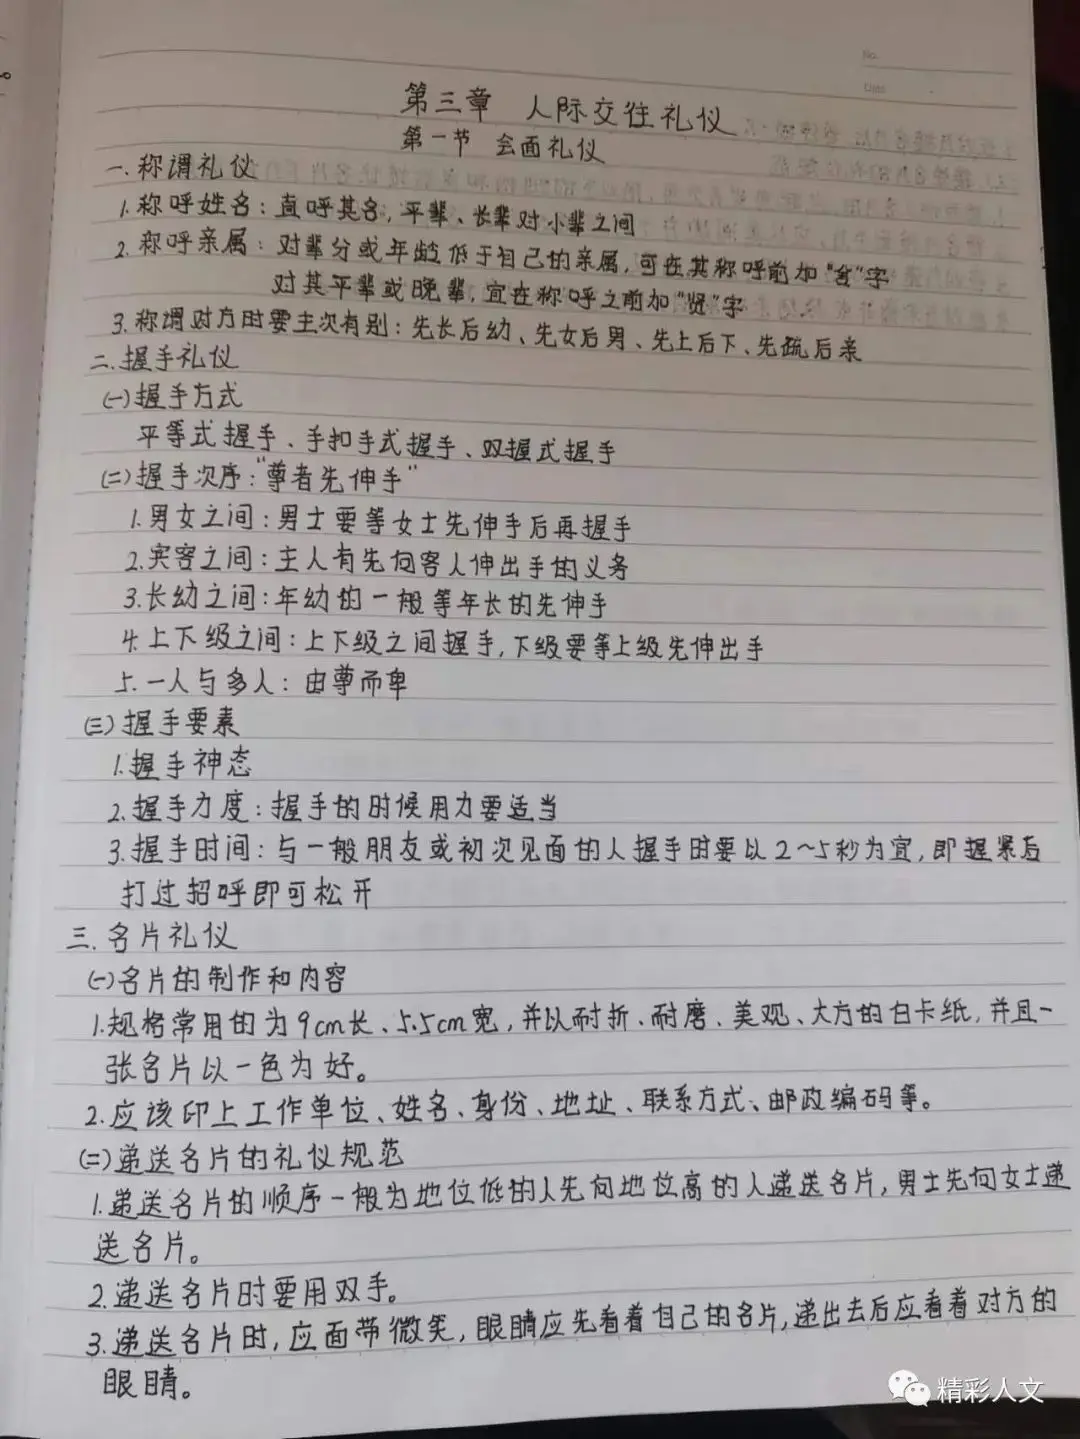 No.
Date
第三章 人际交往礼仪
第一节 会面礼仪
一.称谓礼仪
1.称呼姓名:直呼其名,平辈、长辈对小辈之间
2.称呼亲属:对辈分或年龄低于自己的亲属,可在其称呼前加"舍"字
对其平辈或晚辈,宜在称呼之前加"贤"字
3.称谓对方时要主次有别:先长后幼、先女后男、先上后下、先疏后亲
二.握手礼仪
㈠握手方式
平等式握手、手扣手式握手、双握式握手
㈡握手次序:"尊者先伸手"
1.男女之间:男士要等女士先伸手后再握手
2.宾客之间:主人有先向客人伸出手的义务
3.长幼之间:年幼的一般等年长的先伸手
4.上下级之间:上下级之间握手,下级要等上级先伸出手
5.一人与多人:由尊而卑
㈢握手要素
1.握手神态
2.握手力度:握手的时候用力要适当
3.握手时间:与一般朋友或初次见面的人握手时要以2~5秒为宜,即握紧后
打过招呼即可松开
三.名片礼仪
㈠名片的制作和内容
1.规格常用的为9cm长、5.5cm宽,并以耐折、耐磨、美观、大方的白卡纸,并且一
张名片以一色为好。
2.应该印上工作单位、姓名、身份、地址、联系方式、邮政编码等。
㈡递送名片的礼仪规范
1.递送名片的顺序一般为地位低的人先向地位高的人递送名片,男士先向女士递
送名片。
2.递送名片时要用双手。
3.递送名片时,应面带微笑,眼睛应先看着自己的名片,递出去后应看着对方的
眼睛。
精彩人文